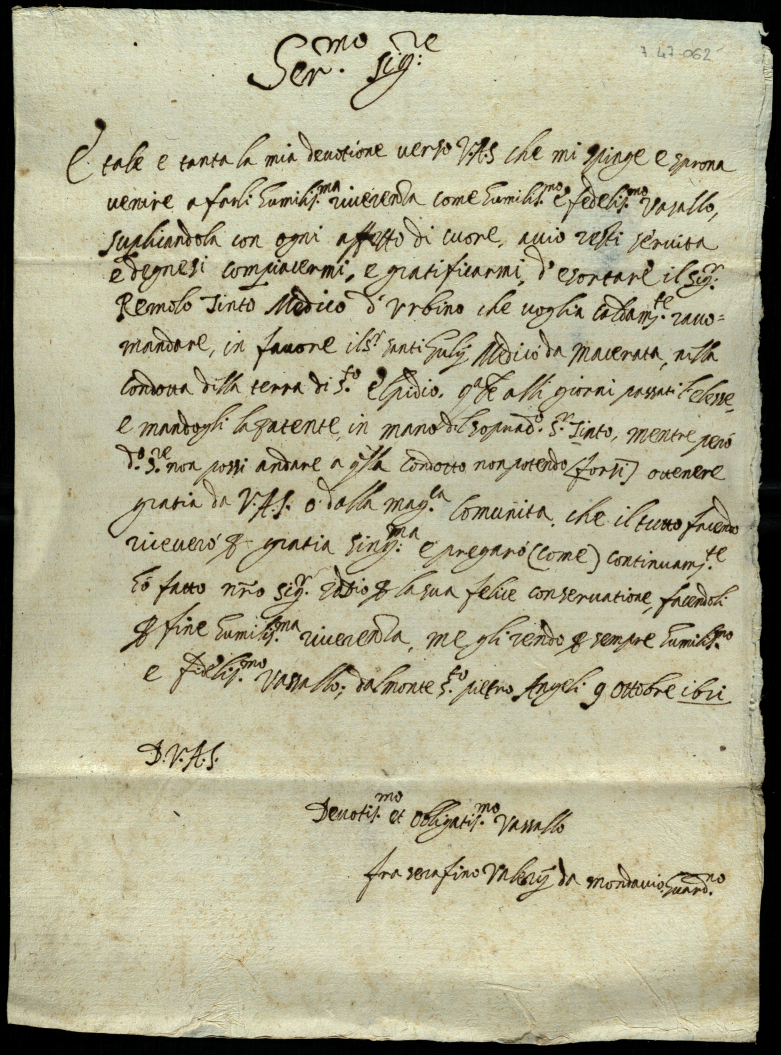 7-47-062
Ser.mo Sig.re
È tale e tanta la mia devotione verso V.A.S che mi spinge e sprona
venire a farli humilis.ma riverenza come humilis.mo e fedelis.mo vasallo,
suplicandola con ogni affetto di cuore, acciò resti servita
e degnesi compiacermi, e gratificarmi, d'esortare il sig.r
Remolo Tinto Medico d'Urbino che voglia caldam.te racco=
mandare, in favore il s.r santi Julij Medico da Macerata, nilla
condotta dilla terra di s.to Elpidio. q.le alli giorni passati l'elesse,
e mandogli la patente, in mano dil soprad.o s.r Tinto, mentre però
d.o s.re non possi andare a q.lla condotto non potendo (forsi) ottenere
gratia da V.A.S. o dalla mag.ca Comunità, che il tutto facendo
riceverò p gratia sing.ma e pregarò (come) continuam.te
hò fatto n.ro sig.r Iddio p la sua felice conservatione, facendoli
p fine humilis.ma riverenza, me gli rendo p sempre humilis.mo
e fidelis.mo vassallo; dal monte s.to pietro Angeli 9 Ottobre 1621
D.V.A.S.
Devotis.mo et obligatis.mo vassallo
fra serafino Valerij da mondavio Guard.no